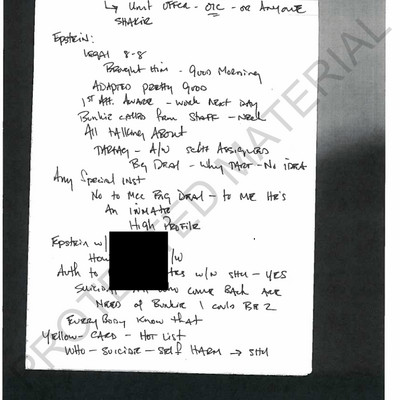 ↳ Unit Officer - OIC - or Anyone
SHAKIR
Epstein:
Legal 8-8
Brought Him - Good Morning
ADAPTED PRETTY GOOD
1st Att. Aware - work Next Day
Bunkie from Staff - Need
All talking About
TARTAG - A/W Assigned
Big Deal - Why - No iDEA
Any Special Inst
No to MCC Big DEAL - to ME HE's
An INMATE
High PROFILE
Epstein w/
How /w
Auth to w/n SHU - YES
Suicide who come Back ARE
NEED of Bunkie 1 could BE 2
EVERYBODY KNOW that
YELLOW - CARD - HOT LIST
WHO - SUICIDE - SELF HARM → SHU
PROTECTED MATERIAL